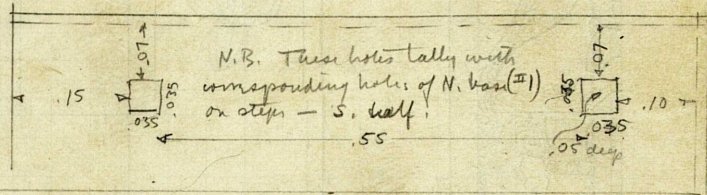 .07
.07
N.B. These holes tally with
corresponding holes of N. base (II 1)
on steps — S. half.
.15
.035
.035
.55
.035
.035
.10
.05 deep